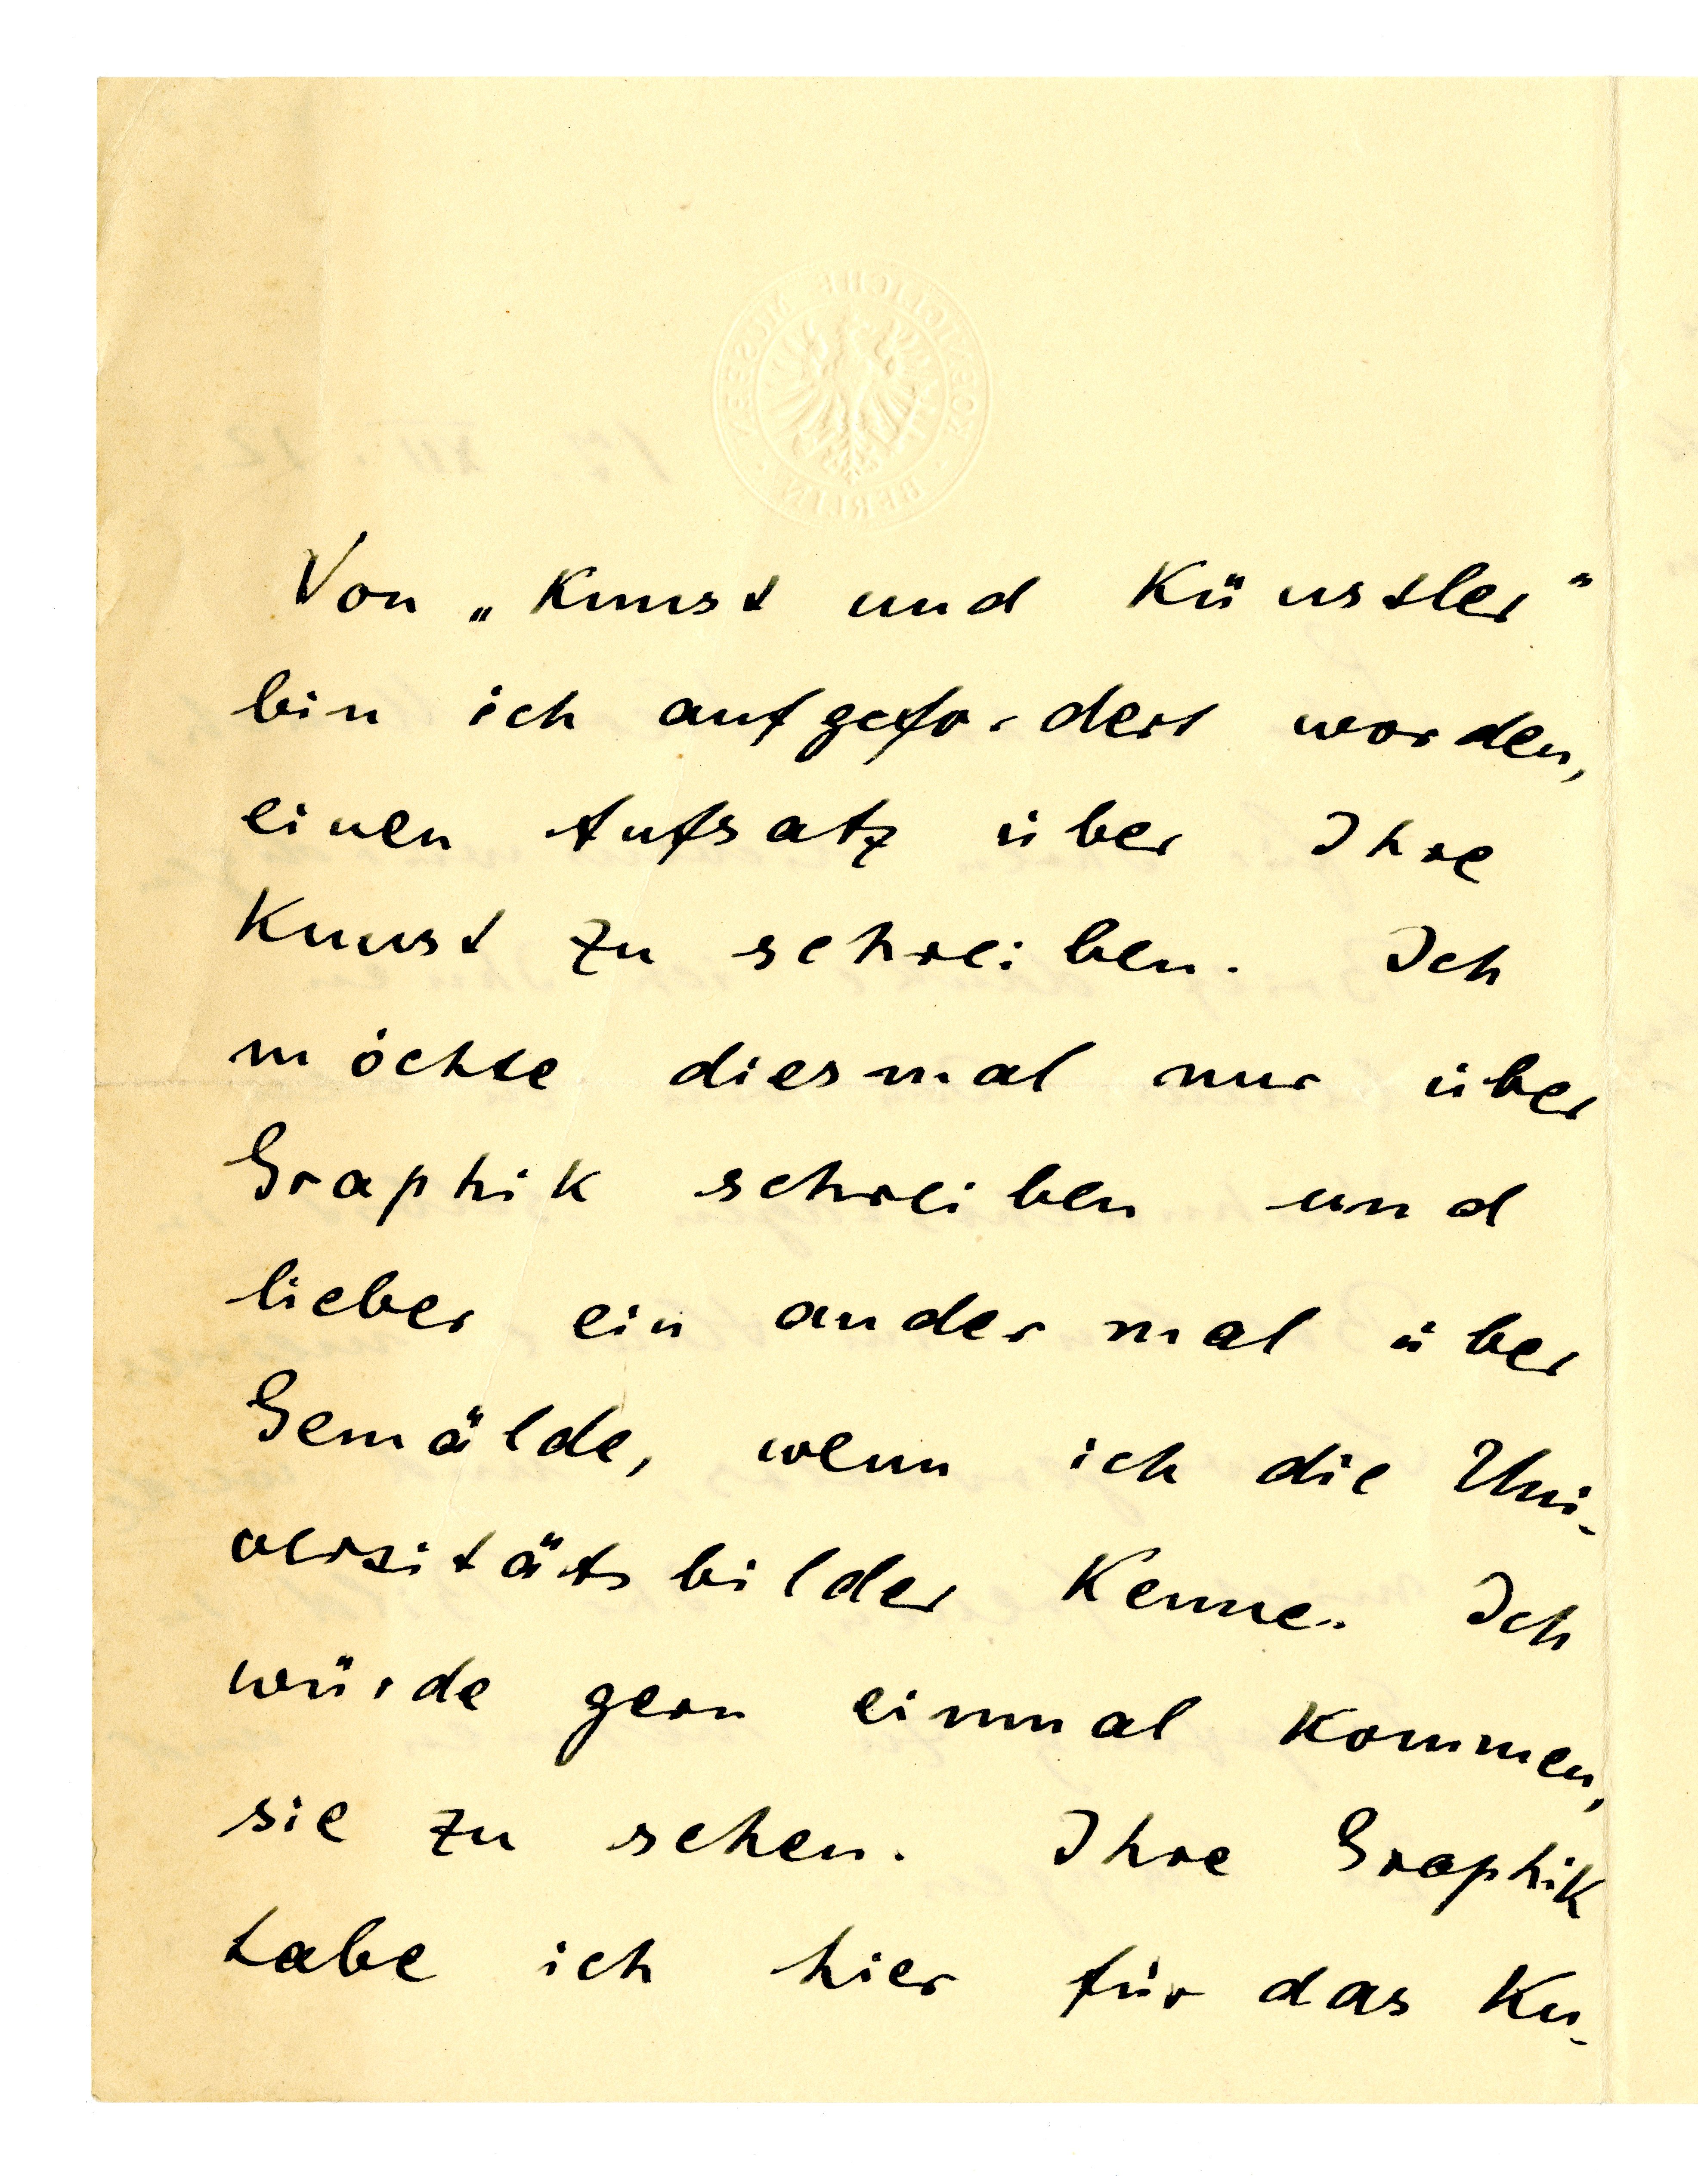 KOENIGLICHE MUSEEN
BERLIN
Von „Kunst und Künstler"
bin ich aufgefordert worden,
einen Aufsatz über Ihre
Kunst zu schreiben. Ich
möchte diesmal nur über
Graphik schreiben und
lieber ein ander mal über
Gemälde, wenn ich die Uni-
versitätsbilder kenne. Ich
würde gern einmal kommen,
sie zu sehen. Ihre Graphik
habe ich hier für das Ku-